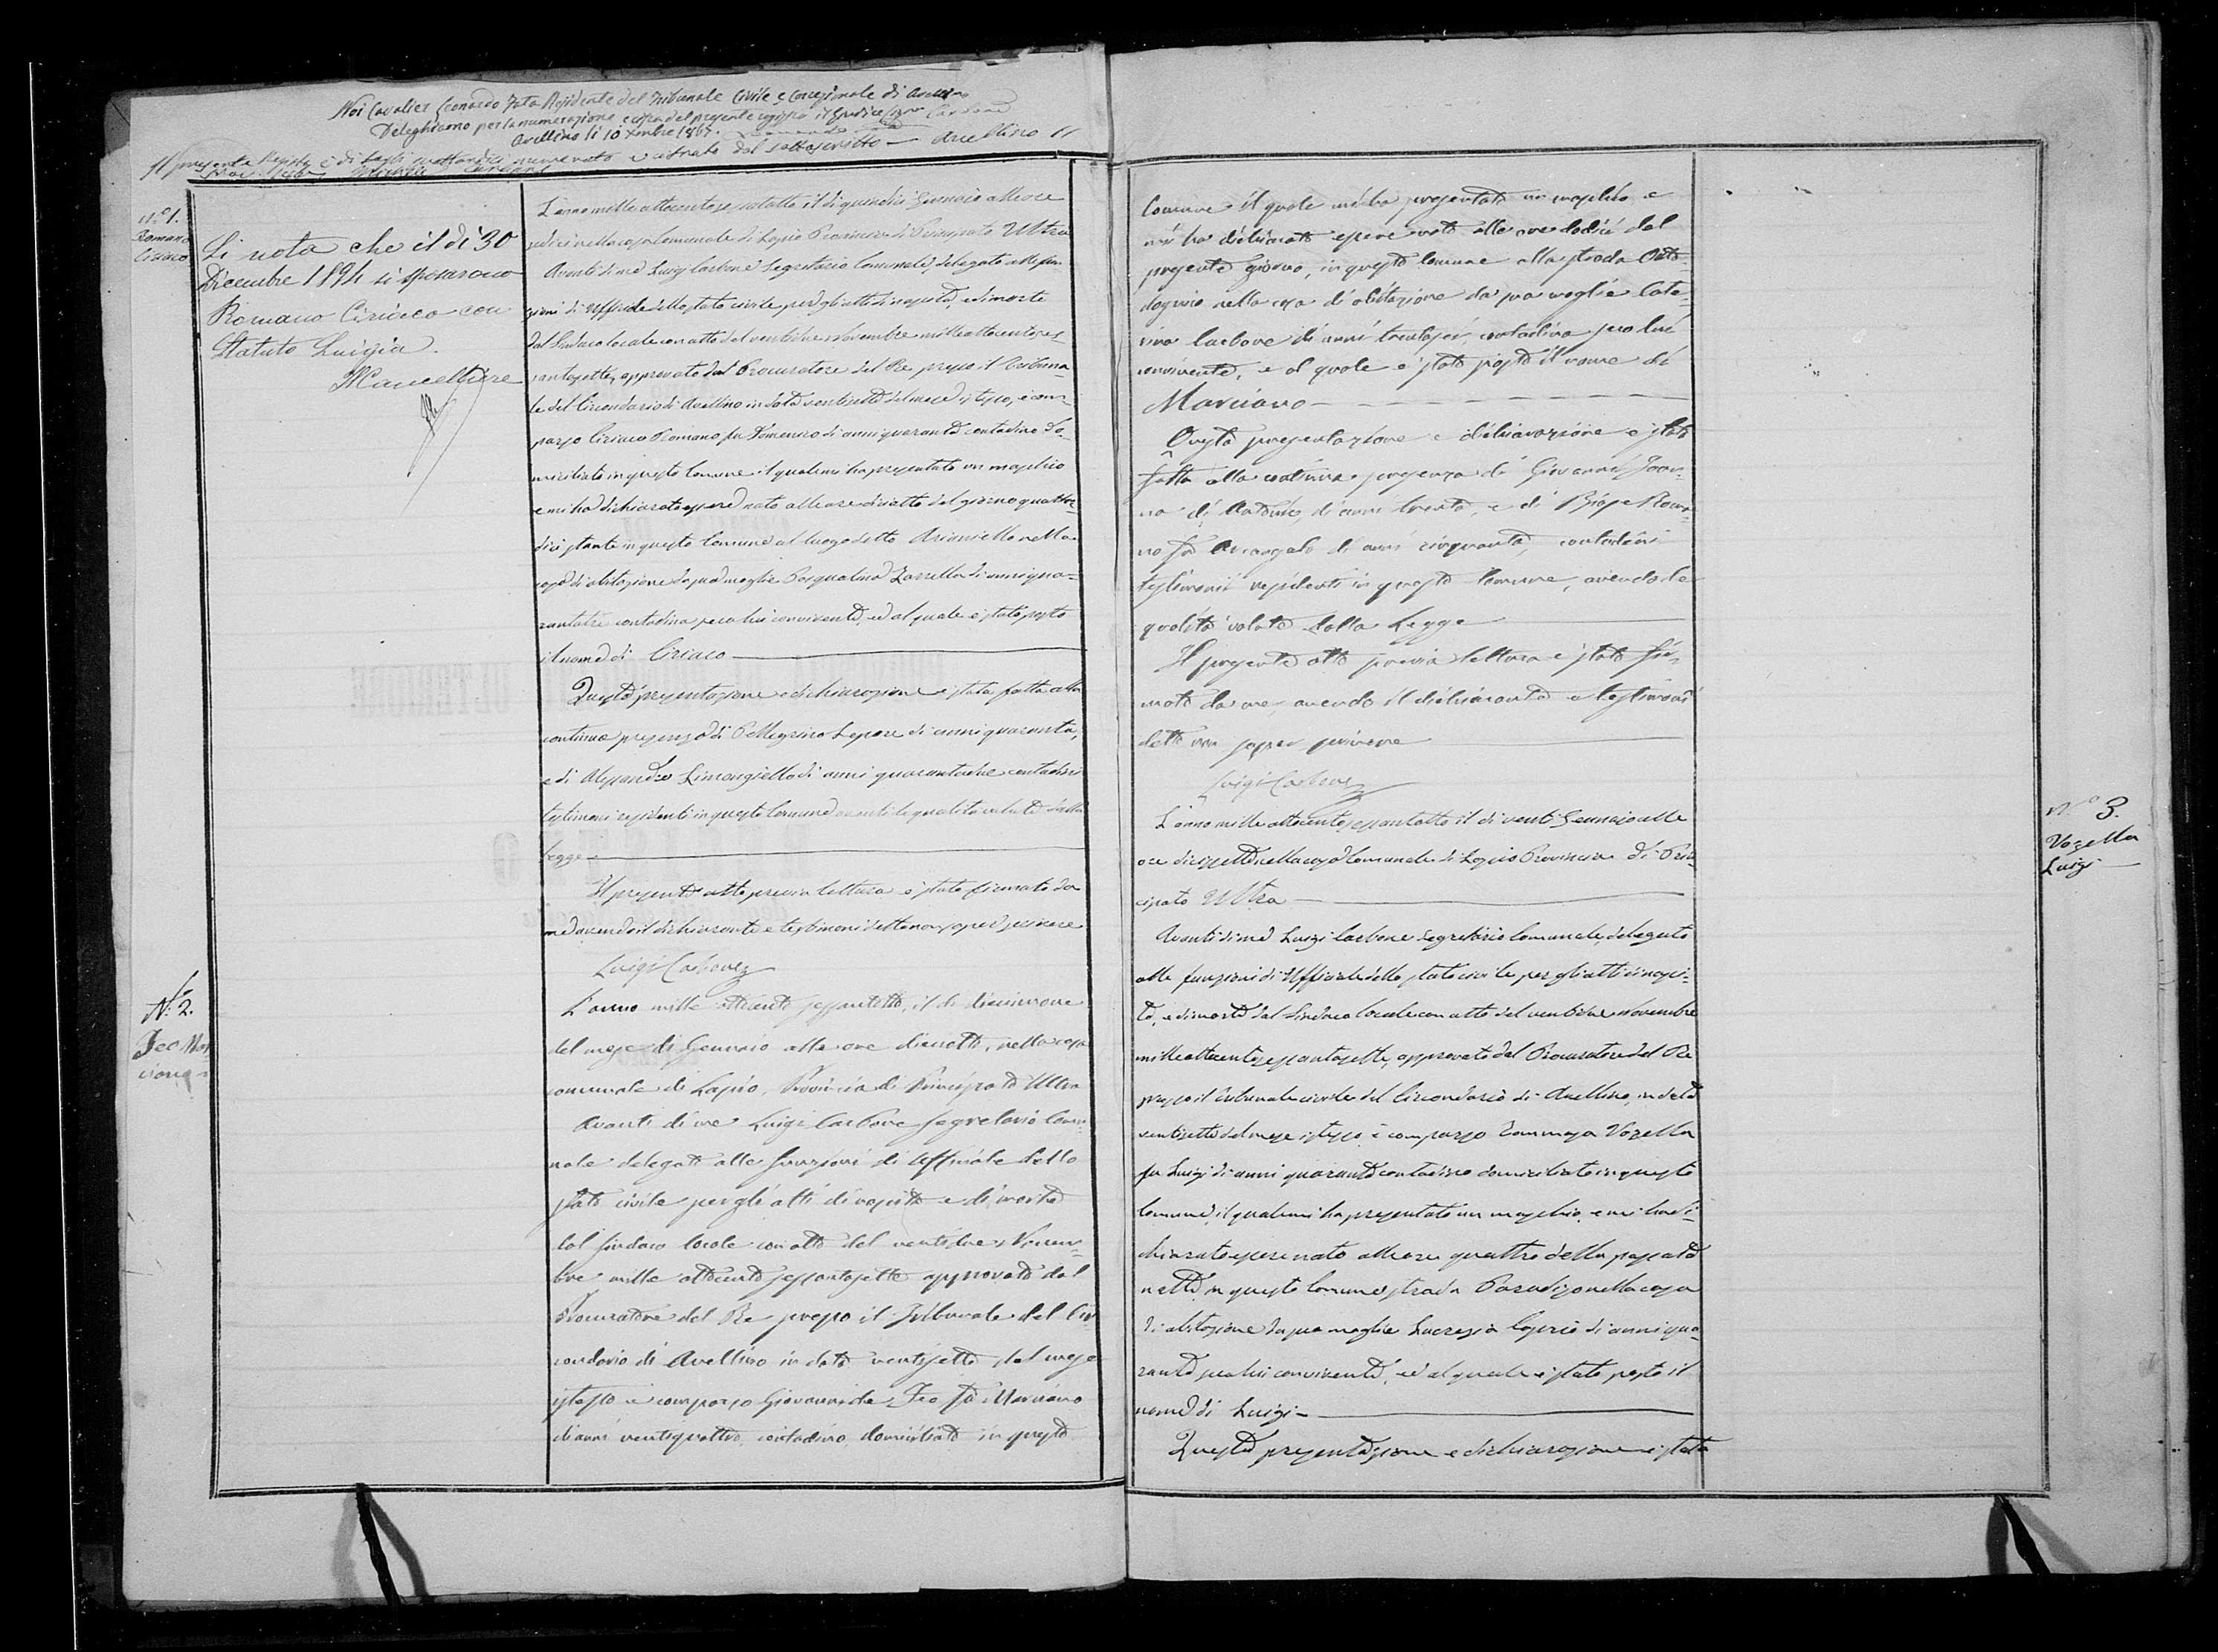 Noi Cavalier Leonardo Fata Presidente del Tribunale Civile e Correzionale di Avellino
Deleghiamo per la numerazione e cifra del presente registro il Giudice Sigr Cardone
Avellino li 10 Xmbre 1867.
Il presente Registro è di fogli numerato e cifrato dal sottoscritto — Avellino
n.° 1.
Romano
Ciriaco
Si nota che il dì 30
Dicembre 1894 si sposarono
Romano Ciriaco con
Statuto Luigia.
Il Cancelliere
L'anno mille ottocento sessantotto il dì quindici Gennaio alle ore
sedici nella casa Comunale di Lapio Provincia di Principato Ultra
Avanti di me Luigi Carbone Segretario Comunale, delegato alle fun
zioni di Uffiziale dello stato civile, per gli atti di nascita, e di morte
dal Sindaco locale con atto del ventidue Novembre mille ottocento ses
santasette, approvato dal Procuratore del Re presso il Tribuna=
le del Circondario di Avellino in data ventisette del mese istesso, è com
parso Ciriaco Romano fu Domenico di anni quaranta contadino do=
miciliato in questo Comune il quale mi ha presentato un maschio
e mi ha dichiarato essere nato alle ore diciotto del giorno quattor=
dici stante in questo Comune al luogo detto Arianiello nella
casa di abitazione da sua moglie Pasqualina Zarrella di anni qua=
rantatre contadina seco lui convivente, ed al quale è stato posto
il nome di Ciriaco
Questa presentazione e dichiarazione è stata fatta alla
continua presenza di Pellegrino Lepore di anni quaranta,
e di Alessandro Limongiello di anni quarantadue contadini
testimoni residenti in questo Comune aventi le qualità volute dalla
legge
Il presente atto previa lettura è stato firmato da
me avendo il dichiarante e testimoni detto non saper scrivere
Luigi Carbone
N.° 2.
Feo Mar
ciano
L'anno mille ottocento sessantotto, il dì diciannove
del mese di Gennaio alle ore diciotto, nella casa
comunale di Lapio, Provincia di Principato Ultra
Avanti di me Luigi Carbone Segretario Comu
nale delegato alle funzioni di Uffiziale dello
stato civile per gli atti di nascita e di morte
dal Sindaco locale con atto del ventidue Novem=
bre mille ottocento sessantasette approvato dal
Procuratore del Re presso il Tribunale del Cir
condario di Avellino in data ventisette del mese
istesso è comparso Giovanni de Feo fu Marciano
di anni ventiquattro contadino domiciliato in questo
Comune il quale mi ha presentato un maschio, e
mi ha dichiarato essere nato alle ore dodici del
presente giorno, in questo Comune alla strada
nella casa di abitazione da sua moglie Cate=
rina Carbone di anni trentasei, contadina seco lui
convivente, e al quale è stato posto il nome di
Marciano
Questa presentazione e dichiarazione è stata
fatta alla continua presenza di Giovanni Ioan=
na di di anni trenta, e di Biagio Roma=
no fu Arcangelo di anni cinquanta, contadini
testimonii residenti in questo Comune, avendo le
qualità volute dalla Legge
Il presente atto previa lettura è stato fir=
mato da me, avendo il dichiarante e testimoni
detto non saper scrivere
Luigi Carbone
n.° 3.
Vozella
Luigi
L'anno mille ottocento sessantotto il dì venti Gennaio alle
ore diciasette nella casa Comunale di Lapio Provincia di Prin=
cipato Ultra
Avanti di me Luigi Carbone Segretario Comunale delegato
alle funzioni di Uffiziale dello stato civile per gli atti di nasci=
ta, e di morte dal Sindaco locale con atto del ventidue Novembre
mille ottocento sessantasette, approvato dal Procuratore del Re
presso il Tribunale civile del Circondario di Avellino, in data
ventisette del mese istesso è comparso Tommaso Vozella
fu Luigi di anni quaranta contadino domiciliato in questo
Comune, il quale mi ha presentato un maschio, e mi ha di=
chiarato essere nato alle ore quattro della passata
notte in questo Comune strada Paradiso nella casa
di abitazione da sua moglie Lucrezia Caprio di anni qua=
ranta seco lui convivente, ed al quale è stato posto il
nome di Luigi
Questa presentazione e dichiarazione è stata